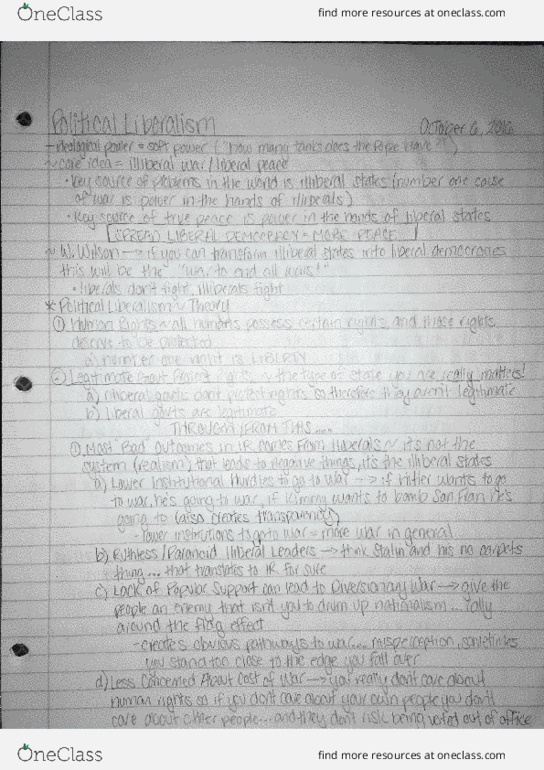 OneClass find more resources at oneclass.com
Political Liberalism October 6, 2016
- ideological power = soft power ("how many tanks does the Pope have?")
~ core idea = illiberal war / liberal peace
• key source of problems in the world is illiberal states (number one cause
of war is power in the hands of illiberals)
• key source of true peace is power in the hands of liberal states
SPREAD LIBERAL DEMOCRACY = MORE PEACE
~ W. Wilson → if you can transform illiberal states into liberal democracies
this will be the "war to end all wars!"
• liberals don't fight, illiberals fight
* Political Liberalism ~ Theory
① Human Rights ~ all humans possess certain rights, and those rights
deserve to be protected
a) number one right is LIBERTY
② Legitimate Govt Protect rights ~ the type of state you are really matters!
a) illiberal govts dont protect rights so therefore they aren't legitimate
b) liberal govts are legitimate
THROUGH FROM THIS....
① Most "Bad" outcomes in IR comes from illiberals ~ it's not the
system (realism) that leads to negative things, it's the illiberal states
a) Lower Institutional Hurdles to go to war → if Hitler wants to go
to war, he's going to war, if Kimmy wants to bomb San Fran he's
going to (also creates transparency)
- lower institutions to go to war = more war in general
b) Ruthless/Paranoid Illiberal Leaders → think Stalin and his no carpets
thing... that translates to IR for sure
c) Lack of Popular Support can lead to Diversionary War → give the
people an enemy that isn't you to drum up nationalism... rally
around the flag effect
- creates obvious pathways to war... misperception, sometimes
you stand too close to the edge you fall over
d) Less Concerned About Cost of War → you really dont care about
human rights so if you dont care about your own people you don't
care about other people... and they don't risk being voted out of office
OneClass find more resources at oneclass.com